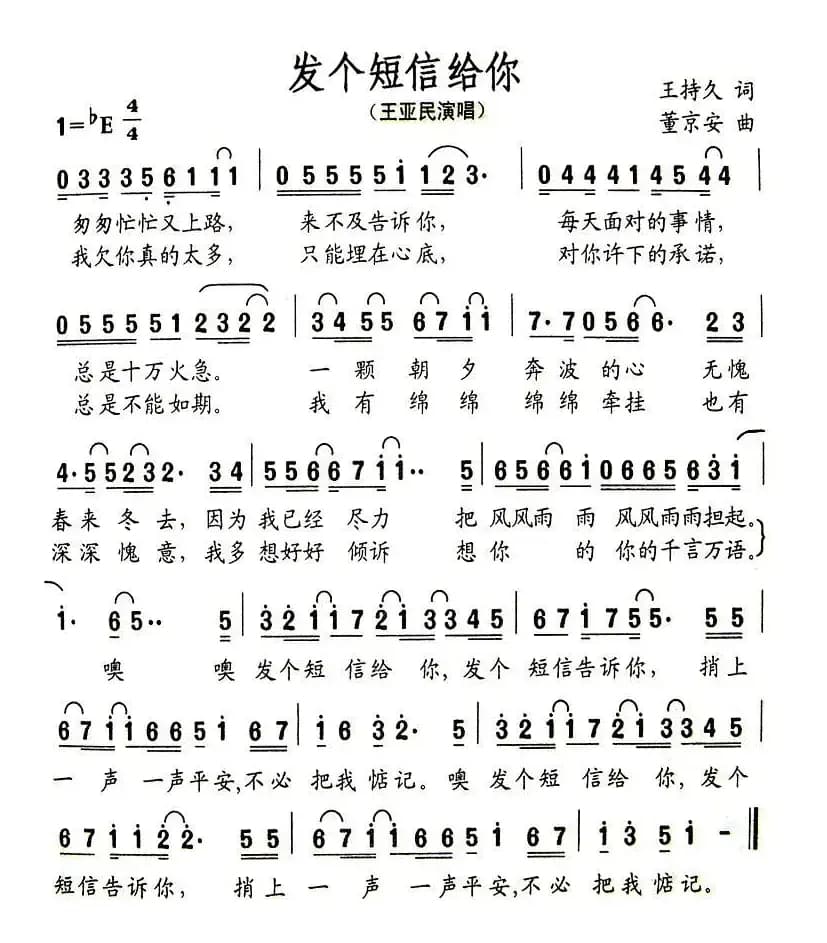 发个短信给你
(王亚民演唱)
王持久 词
1=♭E 4/4
董京安 曲
0 3 3 3 5 6 1 1 1 | 0 5 5 5 5 5 1 1 2 3· | 0 4 4 4 1 4 5 4 4 |
匆匆忙忙又上路, 来不及告诉你, 每天面对的事情,
我欠你真的太多, 只能埋在心底, 对你许下的承诺,
0 5 5 5 5 5 1 2 3 2 2 | 3 4 5 5 6 7 1 1 | 7· 7 0 5 6 6· 2 3 |
总是十万火急。 一颗朝夕 奔波的心 无愧
总是不能如期。 我有绵绵 绵绵牵挂 也有
4· 5 5 2 3 2· 3 4 | 5 5 6 6 7 1 1·· 5 | 6 5 6 6 1 0 6 6 5 6 3 1 |
春来冬去, 因为我已经尽力 把风风雨雨风风雨雨担起。
深深愧意, 我多想好好倾诉 想你的你的千言万语。
1· 6 5·· 5 | 3 2 1 1 7 2 1 3 3 4 5 | 6 7 1 7 5 5· 5 5 |
噢 噢 发个短信给你, 发个 短信告诉你, 捎上
6 7 1 1 6 6 5 1 6 7 | 1 6 3 2· 5 | 3 2 1 1 7 2 1 3 3 4 5 |
一声一声平安,不必 把我惦记。噢 发个短信给你, 发个
6 7 1 1 2 2· 5 5 | 6 7 1 1 6 6 5 1 6 7 | 1 3 5 1 - ‖
短信告诉你, 捎上 一声一声平安,不必 把我惦记。